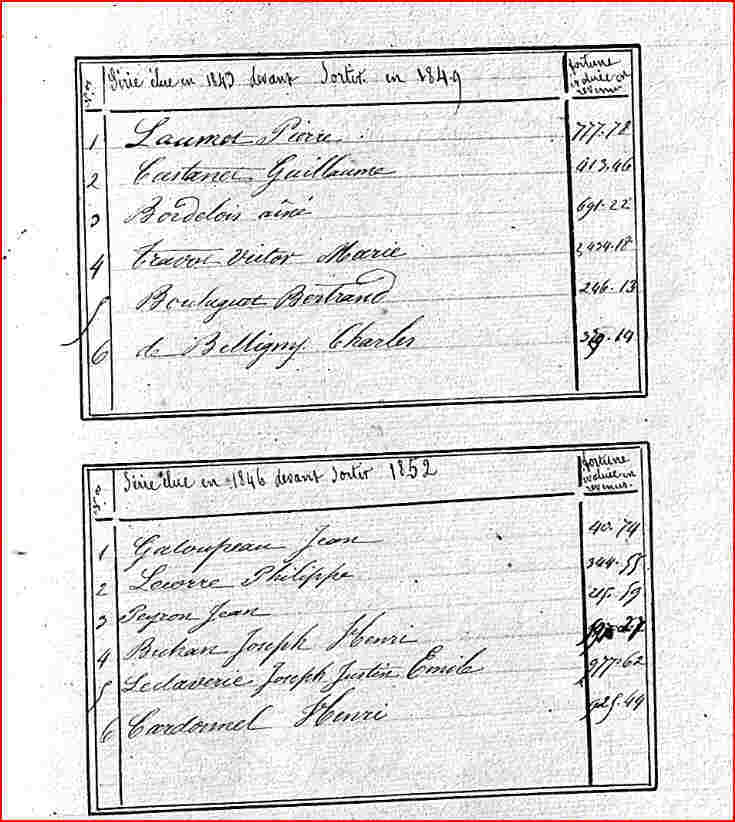 Nos Série élue en 1843 devant Sortir en 1849 fortune évaluée en revenus
1 Laumet Pierre 777.78
2 Castanet Guillaume 913.46
3 Bordelois aîné 691.22
4 Travot Victor Marie 2,424.18
5 Bertrand 246.13
6 de Belligny Charles 19
Nos Série élue en 1846 devant Sortir 1852 fortune évaluée en revenus.
1 Galoupeau Jean 40.74
2 Lecorre Philippe 344.55
3 Peyron Jean 215.59
4 Buhan Joseph Henri 27
5 Leclaverie Joseph Justin Emile 977.62
6 Cardonnel Henri 925.49